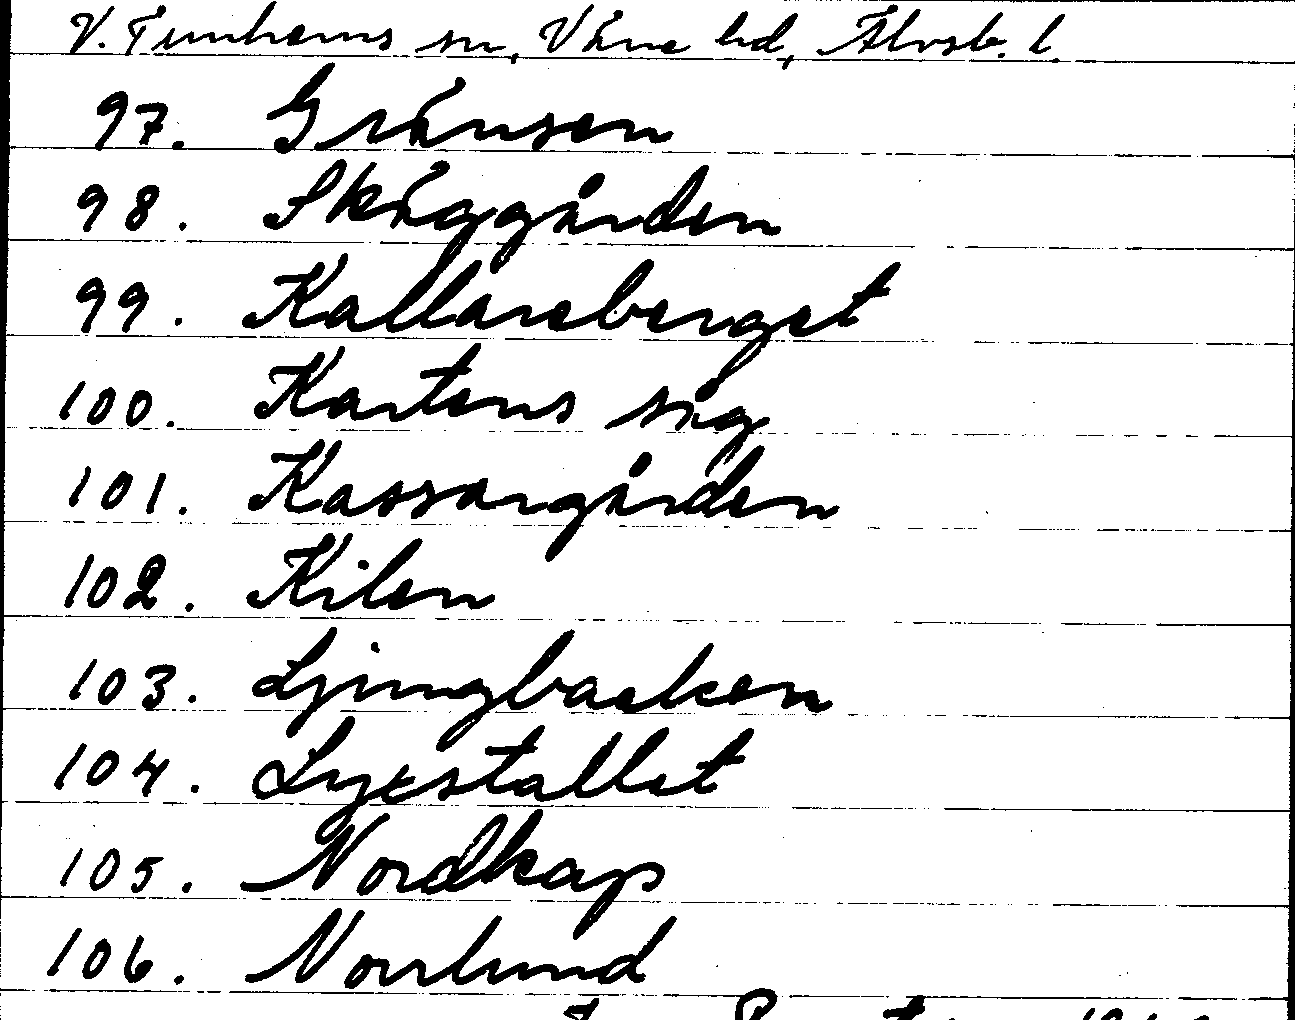 V. Tunhems sn, Väne hd, Älvsb. l.
97. Gränsen
98. Skäggården
99. Kallareberget
100. Kartens
101. Kassargården
102. Kilen
103. Ljungbacken
104.
105. Nordkap
106. Norrlund